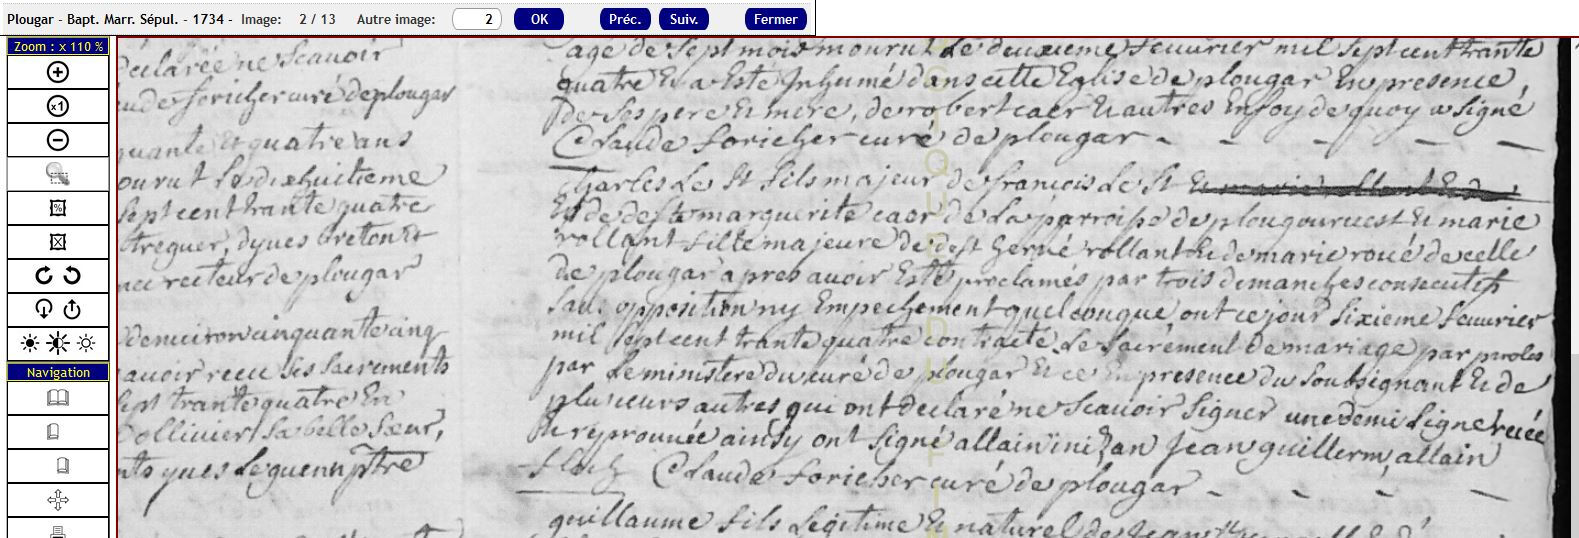 Plougar - Bapt. Marr. Sépul. - 1734 - Image: 2 / 13 Autre image: 2 OK Préc. Suiv. Fermer
Zoom : x 110 %
x1
%
Navigation
declarée ne scavoir
claude foricher curé de plougar
quante et quatre ans
mourut Le dixhuitieme
sept cent trante quatre
treguer, yves breton et
recteur de plougar
demeiron cinquante cinq
avoir receu ses sacrements
sept trante quatre En
ollivier sa belle sœur,
yves Le guenn ptre
agé de sept mois mourut Le deuxieme fevvrier mil sept cent trante
quatre Et a esté Inhumé dans cette Eglise de plougar En presence
De ses pere Et mere, de robert caer Et autres En foy de quoy a signé
Claude foricher curé de plougar -
Charles Le St fils majeur de francois Le St
Et de marguerite caer de La parroisse de plougourvest Et marie
rollant fille majeure de deft hervé rollant Et de marie roué de celle
de plougar apres avoir Esté proclamés par trois dimanches consecutifs
sans opposition ny Empechement quelconque ont ce jour sixieme fevvrier
mil sept cent trante quatre contracté Le sacrement de mariage par paroles
par Le ministere du curé de plougar Et ce En presence du soubsignant Et de
plusieurs autres qui ont declaré ne scavoir signer une demi ligne
approuvée ainsy ont signé allain jean guillerm, allain
floch Claude foricher curé de plougar -
guillaume fils Legitime Et naturel de Jean